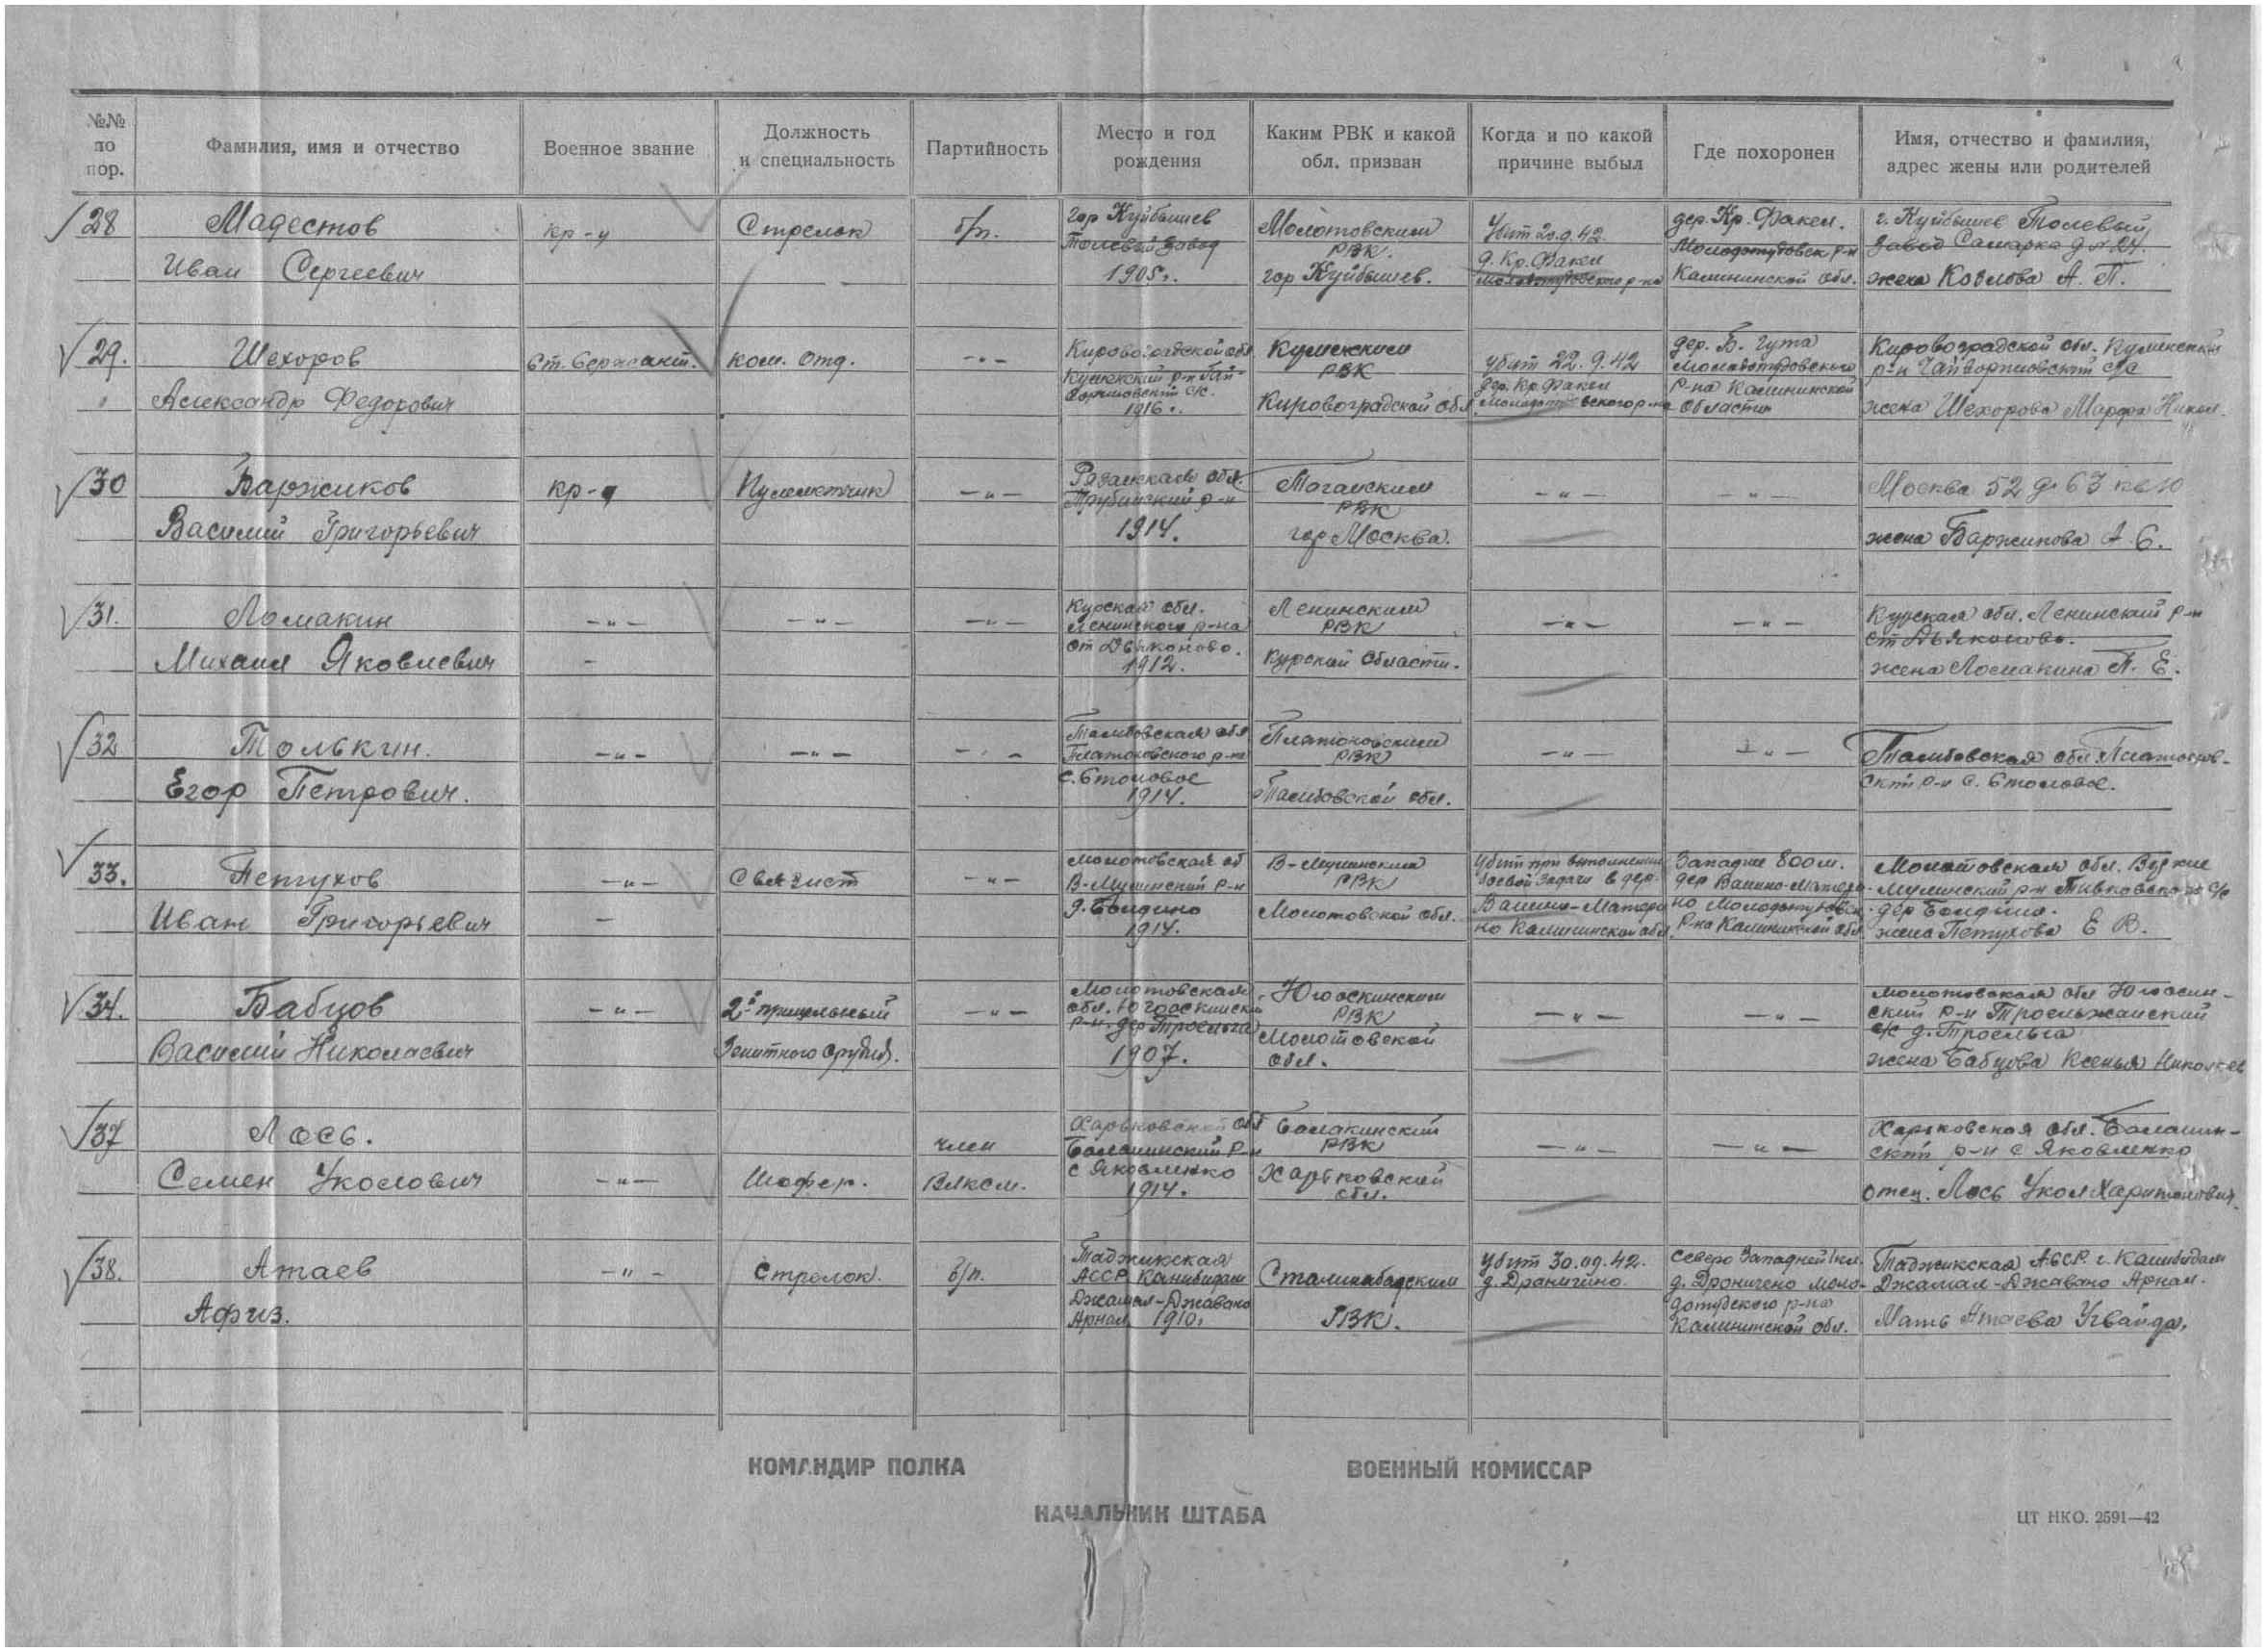 №№ по пор.
Фамилия, имя и отчество
Военное звание
Должность и специальность
Партийность
Место и год рождения
Каким РВК и какой обл. призван
Когда и по какой причине выбыл
Где похоронен
Имя, отчество и фамилия, адрес жены или родителей
28
Мадестов
Иван Сергеевич
кр-ц
Стрелок
б/п.
гор Куйбышев
Толевый завод
1905г.
Молотовским
РВК.
гор Куйбышев.
Убит 20.9.42.
д. Кр. Факел
Молодотудовского р-на
дер. Кр. Факел.
Молодотудовск р-н
Калининской обл.
г. Куйбышев Толевый
завод Самарка д № 24.
жена Козлова А. П.
29.
Шехоров
Александр Федорович
Ст. Сержант.
ком. отд.
-"-
Кировоградской обл
1916г.
РВК
Кировоградской обл
убит 22.9.42
дер. Кр. Факел
дер. Б. Гута
Молодотудовского
р-на Калининской
области
Кировоградской обл.
жена Шехорова Марфа Никол.
30
Баржиков
Василий Григорьевич
кр-ц
Пулеметчик
-"-
Рязанская обл.
1914.
Таганским
РВК
гор Москва.
-"-
-"-
Москва 52 д. 63 кв 10
жена Баржикова А. С.
31.
Ломакин
Михаил Яковлевич
-"-
-"-
-"-
Курская обл.
Ленинского р-на
ст Дьяконово.
1912.
Ленинским
РВК
Курской области.
-"-
-"-
Курская обл. Ленинский р-н
ст Дьяконово.
жена Ломакина П. Е.
32
Толькин.
Егор Петрович.
-"-
-"-
-"-
Тамбовская обл
Платоновского р-на
с. Столовое
1914.
Платоновским
РВК
Тамбовской обл.
-"-
-"-
Тамбовская обл Платонов-
ский р-н с. Столовое.
33.
Петухов
Иван Григорьевич
-"-
Связист
-"-
Молотовская об
В-Муллинский р-н
д. Болдино
1914.
В-Муллинским
РВК
Молотовской обл.
Убит при выполнении
боевой задачи в дер.
Ванино-Матери
но Калининской обл.
Западнее 800 м.
дер Ванино-Матери-
но Молодотудовск.
р-на Калининской обл.
Молотовская обл. Верхне
Муллинский р-н
дер Болдино.
жена Петухова Е В.
34.
Бабцов
Василий Николаевич
-"-
2й прицельный
Зенитного орудия.
-"-
Молотовская
обл.
р-н. дер Троельга
1907.
РВК
Молотовской
обл.
-"-
-"-
Молотовская обл
ский р-н Троельжанский
с/с д. Троельга
жена Бабцова Ксенья Николаев
37
Лось.
Семен Уколович
-"-
Шофер.
член
ВЛКСМ.
Харьковской обл
с Яковленко
1914.
РВК
Харьковский
обл.
-"-
-"-
Харьковская обл.
ский р-н с Яковленко
отец. Лось Укол Харитонович.
38.
Атаев
Афиз.
-"-
Стрелок.
б/п.
Таджикская
АССР Канибадам
Джамал-Джавано
Арнал 1910г
Сталинабадским
РВК.
Убит 30.09.42.
д. Дроничино.
Северо Западней 1км.
д. Дроничено Моло-
дотудского р-на
Калининской обл.
Таджикская АССР. г. Канибадам
Джамал-Джавано Арнал.
Мать Атаева
КОМАНДИР ПОЛКА
ВОЕННЫЙ КОМИССАР
НАЧАЛЬНИК ШТАБА
ЦТ НКО. 2591—42